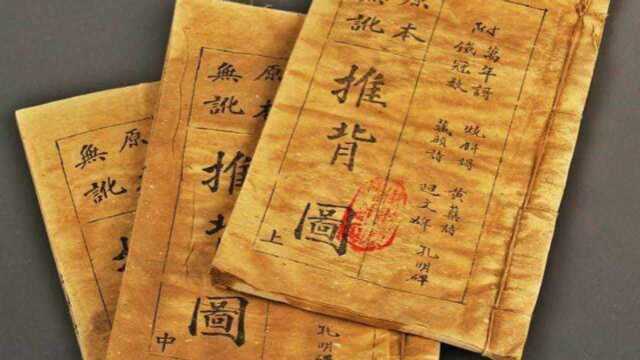 附萬年謌 燒餅謌 黃蘗詩 孔明碑
鐵冠數 藏頭詩 迴文
原本
無訛
推背圖
上
原本
無訛
推背圖
中
孔明碑
原本
無訛